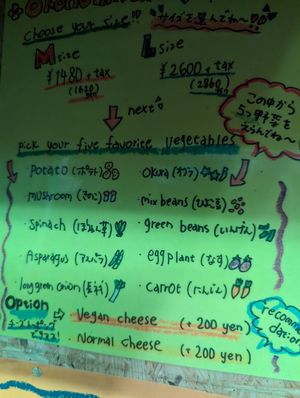 choose your size!!
サイズを選んでね〜
M size
L size
¥1480 + tax
¥2600 + tax
(2860)
next
この中から
5つ野菜を
えらんでね〜
pick your five favorite vegetables
Potato (ポテト)
Okura (オクラ)
mushroom (きのこ)
mix beans (ひよこ豆)
Spinach (ほうれん草)
green beans (いんげん)
Asparagus (アスパラ)
eggplant (なす)
long green onion (長ネギ)
carrot (にんじん)
Option
Vegan cheese (+200 yen)
Normal cheese (+200 yen)
recommendation